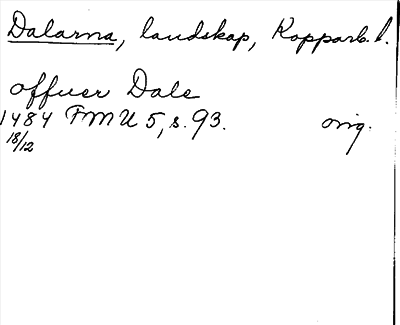 Dalarna, landskap, Kopparb. l.
offuer Dale
1484 FMU 5, s. 93. orig.
18/12